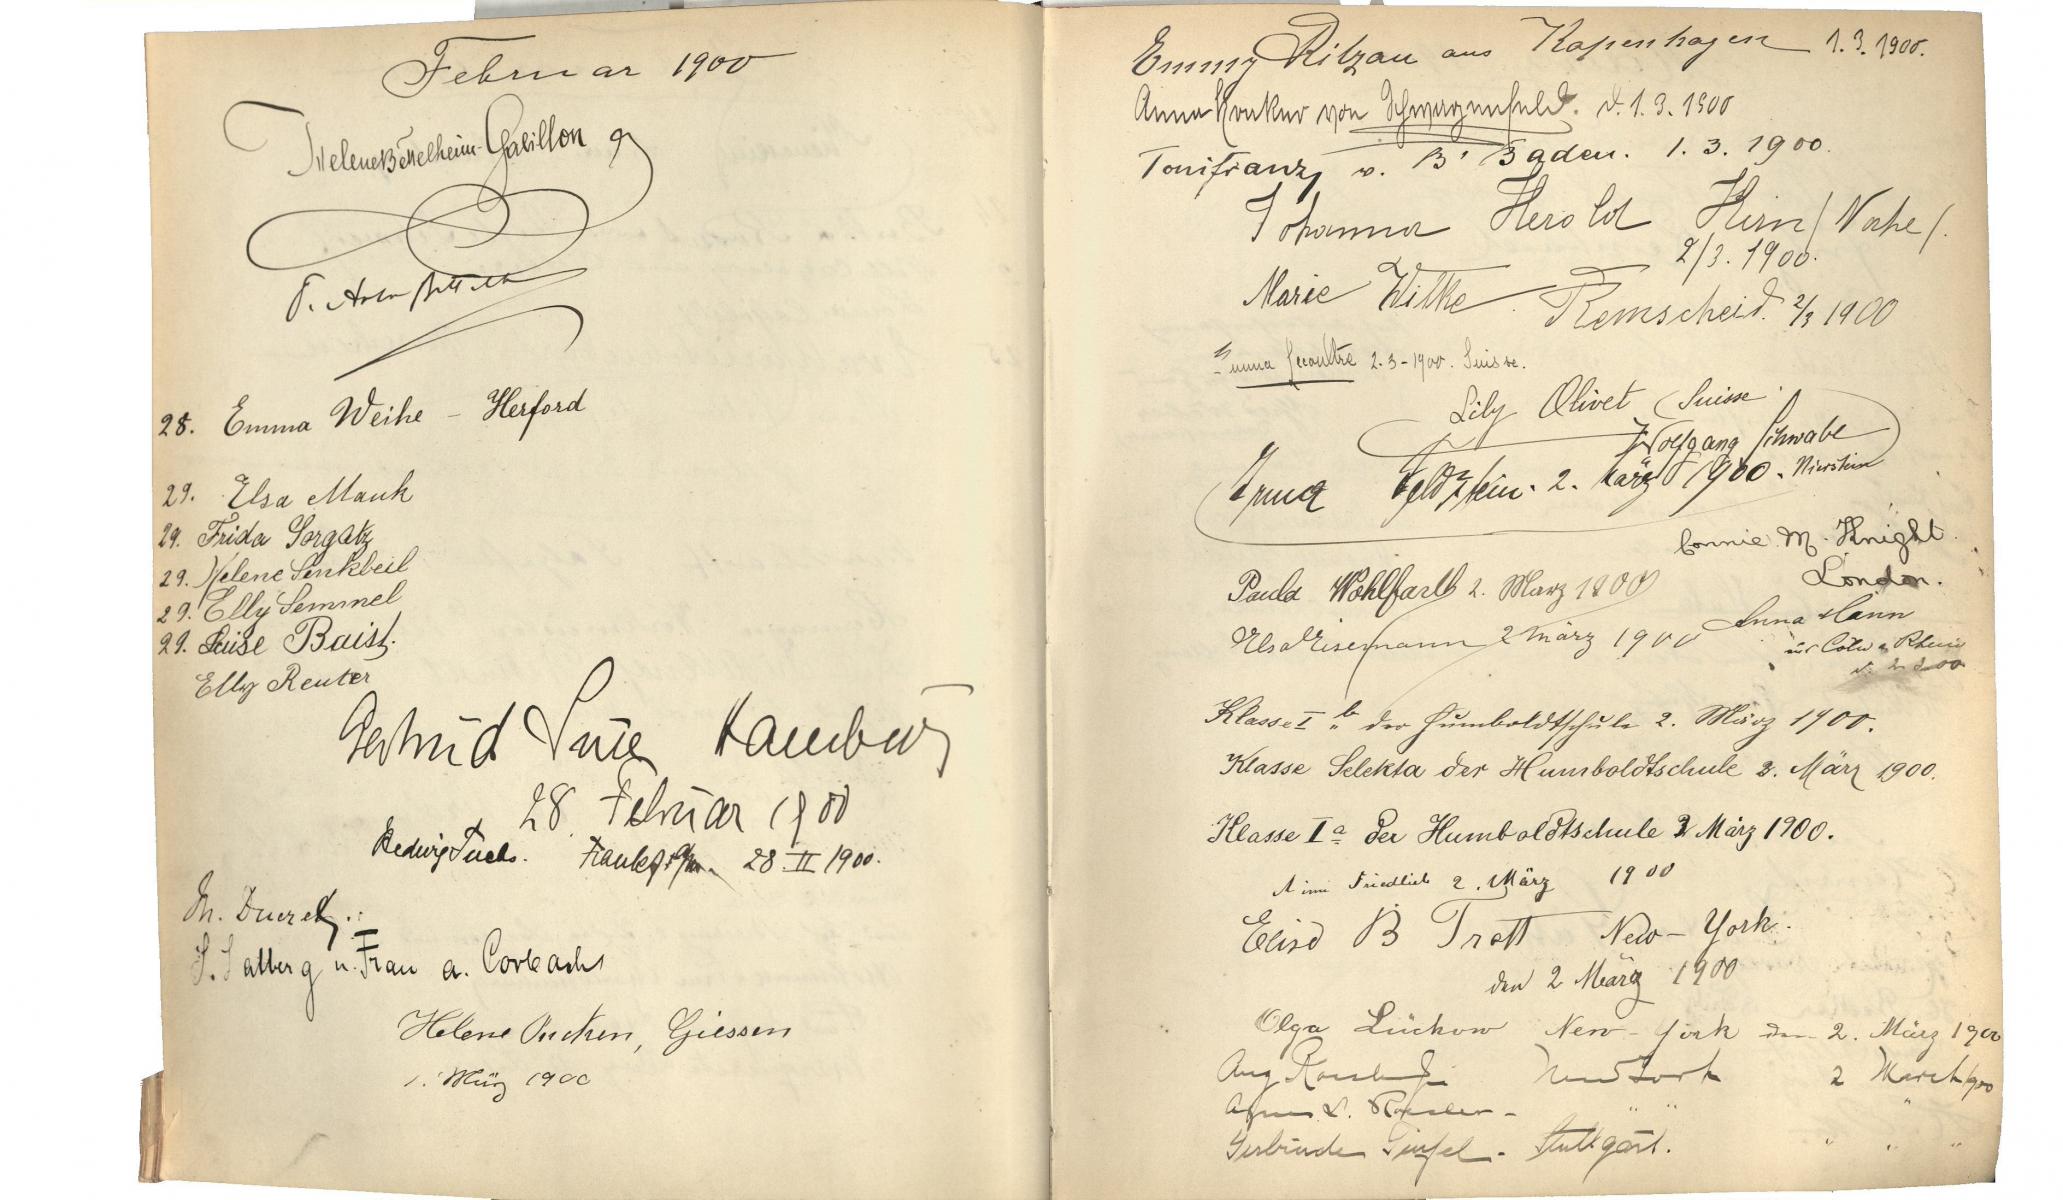 Februar 1900
Helene Bettelheim-Gabillon
28. Emma Weihe - Herford
29. Elsa Mauk
29. Frida Sorgatz
29. Helene Senkbeil
29. Elly Semmel
29. Luise Baist.
Elly Reuter
Gertrud Hamburg
28. Februar 1900
Hedwig Fuchs. Frankf. a/M. 28 II 1900.
u. Frau a. Corbach
Helene Oncken, Giessen
1. März 1900
Emmy Ritzau aus Kopenhagen 1.3.1900.
Anna von Schwarzenfeld. d. 1.3.1900
Toni Franz, v. B' Baden. 1.3.1900.
Johanna Herold Kirn / Nahe /.
2/3. 1900.
Marie Wilke Remscheid. 2/3 1900
2.3-1900. Suisse.
Lily Olivet Suisse
Wolfgang Schwabe
Erna 2. März 1900. Nierstein
Connie M. Knight
London.
Paula Wohlfarth 2. März 1900
Elsa Eisemann 2 März 1900
Anna Hann
Klasse I b der Humboldtschule 2. März 1900.
Klasse Selekta der Humboldtschule 2. März 1900.
Klasse I a der Humboldtschule 2 März 1900.
Friedlieb 2. März 1900
Elise B Trott New-York.
den 2 März 1900
Olga Lückow New-York den 2. März 1900
New York 2 March/900
Agnes L. Roesler - " "
Gertrude - Stuttgart. " " "